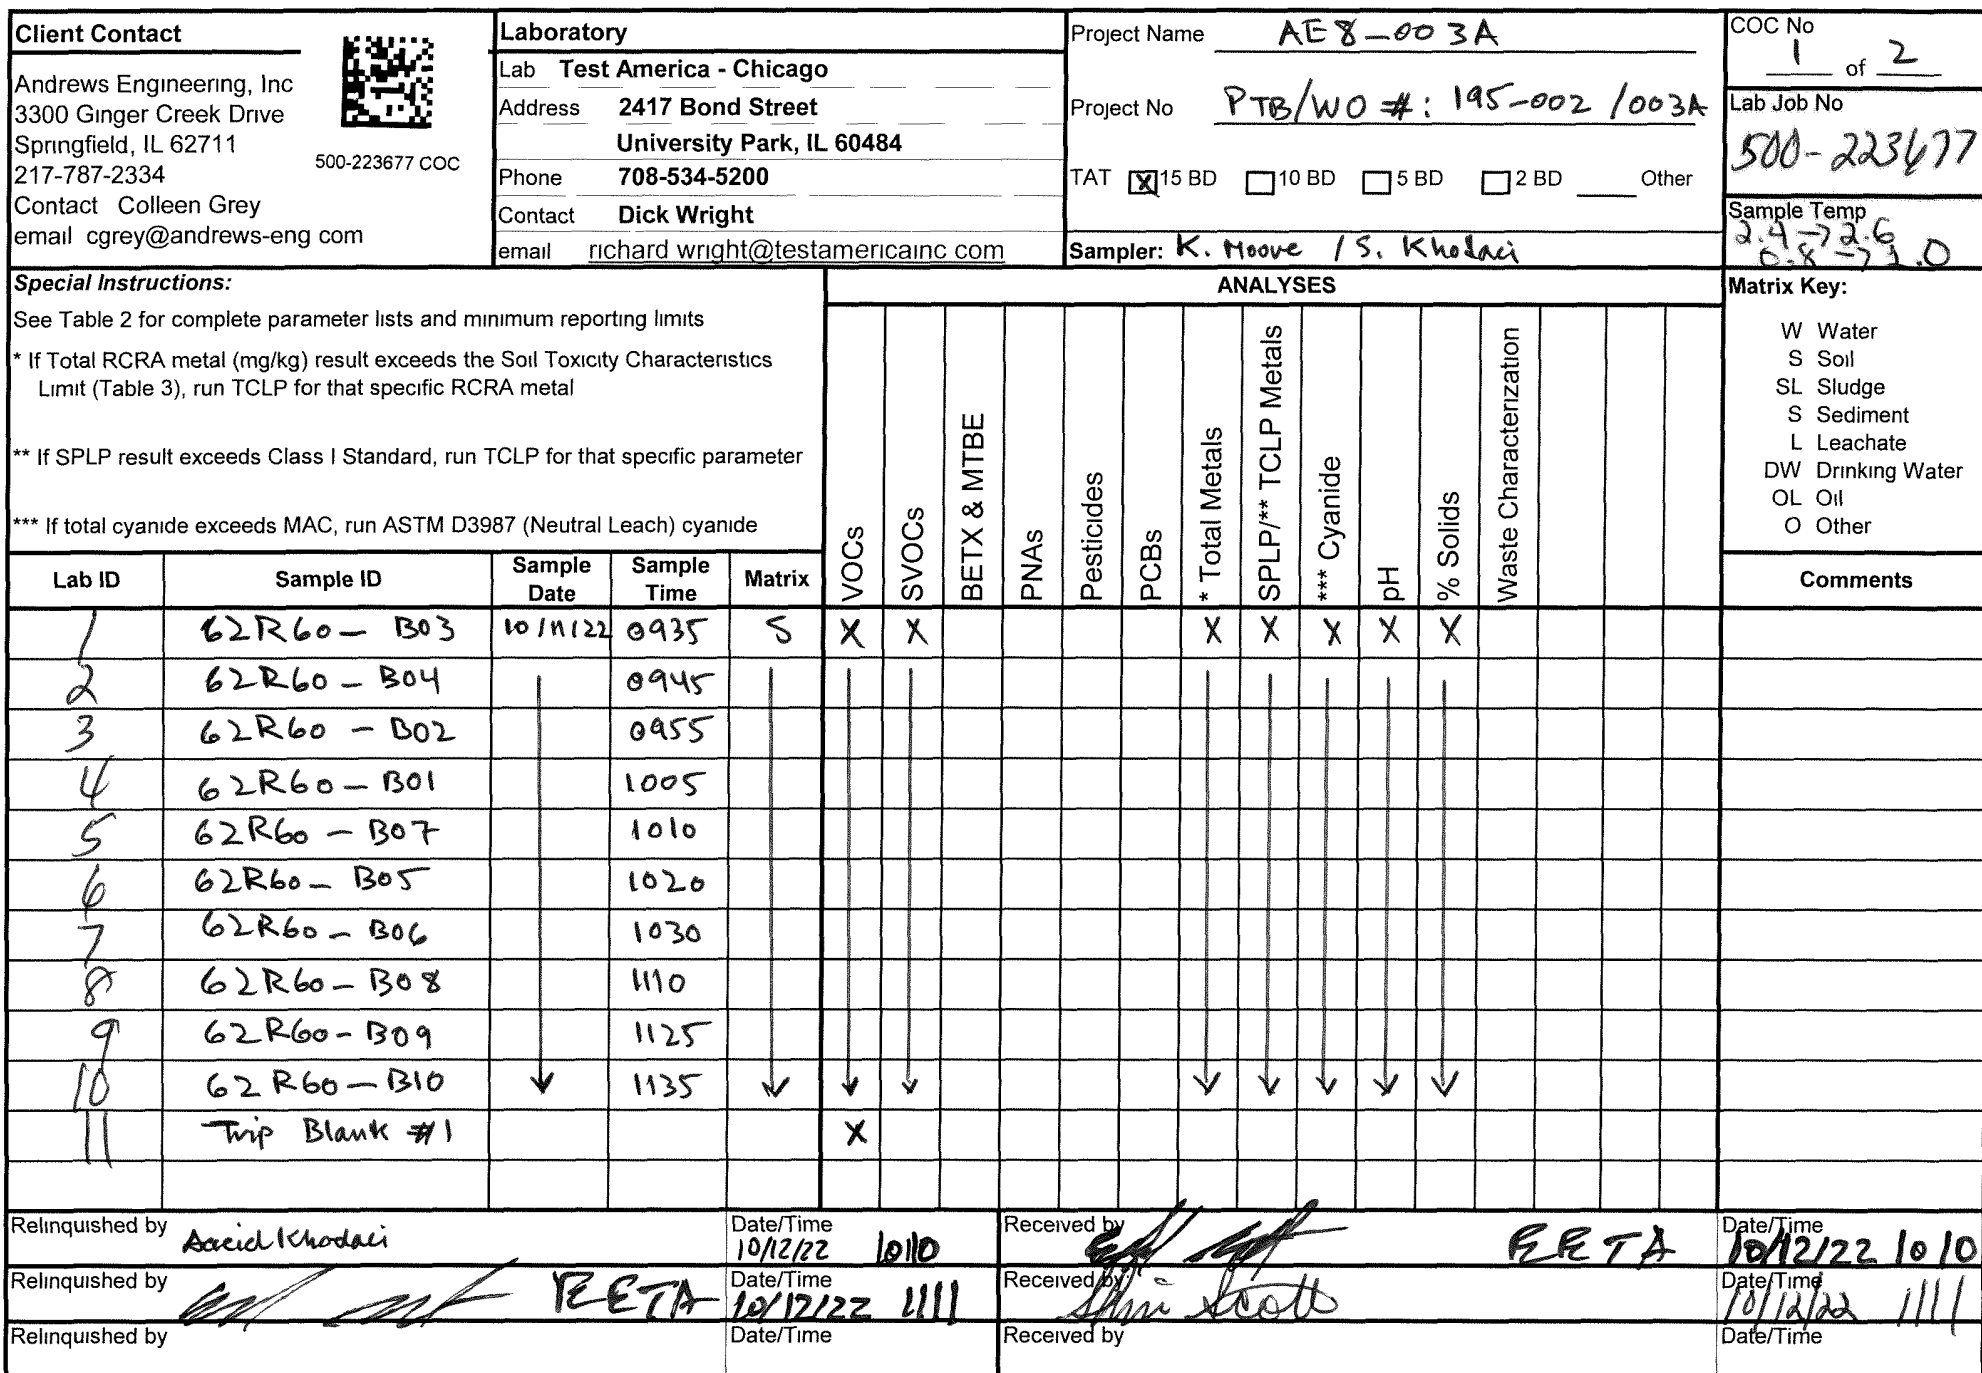 Client Contact
Andrews Engineering, Inc
3300 Ginger Creek Drive
Springfield, IL 62711
217-787-2334
Contact Colleen Grey
email cgrey@andrews-eng com
500-223677 COC
Laboratory
Lab Test America - Chicago
Address 2417 Bond Street
University Park, IL 60484
Phone 708-534-5200
Contact Dick Wright
email richard wright@testamericainc com
Project Name AE8-003A
Project No PTB/WO #: 195-002 /003A
TAT X 15 BD 10 BD 5 BD 2 BD Other
Sampler: K. Moore / S. Khodaei
COC No
1 of 2
Lab Job No
500-223677
Sample Temp
2.4→2.6
0.8→1.0
Special Instructions:
See Table 2 for complete parameter lists and minimum reporting limits
* If Total RCRA metal (mg/kg) result exceeds the Soil Toxicity Characteristics
Limit (Table 3), run TCLP for that specific RCRA metal
** If SPLP result exceeds Class I Standard, run TCLP for that specific parameter
*** If total cyanide exceeds MAC, run ASTM D3987 (Neutral Leach) cyanide
ANALYSES
VOCs
SVOCs
BETX & MTBE
PNAs
Pesticides
PCBs
* Total Metals
SPLP/** TCLP Metals
*** Cyanide
pH
% Solids
Waste Characterization
Matrix Key:
W Water
S Soil
SL Sludge
S Sediment
L Leachate
DW Drinking Water
OL Oil
O Other
Lab ID Sample ID Sample Date Sample Time Matrix Comments
1 62R60-B03 10/11/22 0935 S X X X X X X X
2 62R60-B04 0945
3 62R60-B02 0955
4 62R60-B01 1005
5 62R60-B07 1010
6 62R60-B05 1020
7 62R60-B06 1030
8 62R60-B08 1110
9 62R60-B09 1125
10 62R60-B10 1135
11 Trip Blank #1 X
Relinquished by Saeid Khodaei Date/Time 10/12/22 1010 Received by EETA Date/Time 10/12/22 1010
Relinquished by EETA Date/Time 10/12/22 1111 Received by Scott Date/Time 10/12/22 1111
Relinquished by Date/Time Received by Date/Time